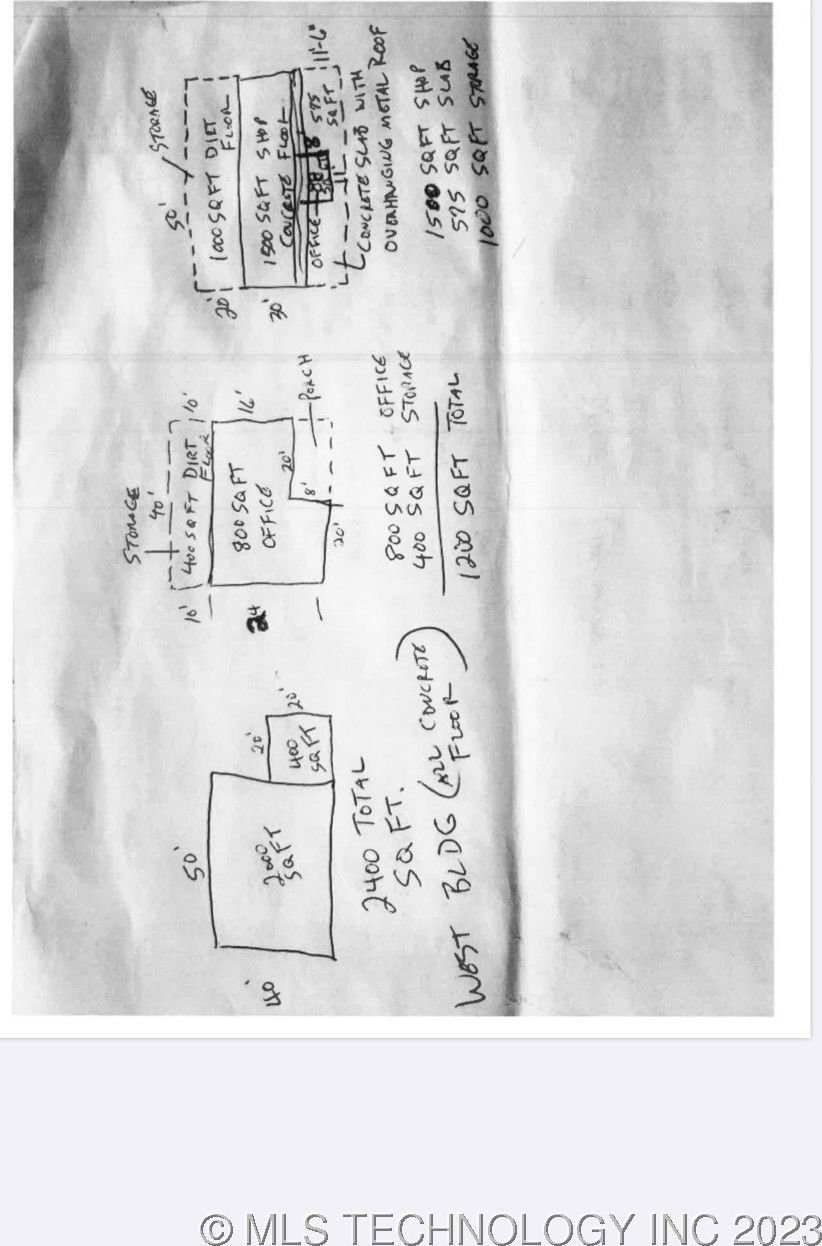 50'
40'
2000
SQ FT
20'
20'
400
SQ FT
2400 TOTAL
SQ. FT.
WEST BLDG (ALL CONCRETE
FLOOR)
STORAGE
40'
10'
10'
400 SQ FT DIRT
FLOOR
24
16'
800 SQ FT
OFFICE
20'
8'
20'
PORCH
800 SQ FT OFFICE
400 SQ FT STORAGE
1200 SQ FT TOTAL
STORAGE
50'
20'
1000 SQ FT DIRT
FLOOR
30'
1500 SQ FT SHOP
CONCRETE FLOOR
OFFICE
88
SQ FT
8'
11'
575
SQ FT
11'-6"
CONCRETE SLAB WITH
OVERHANGING METAL ROOF
1500 SQFT SHOP
575 SQFT SLAB
1000 SQFT STORAGE
© MLS TECHNOLOGY INC 2023